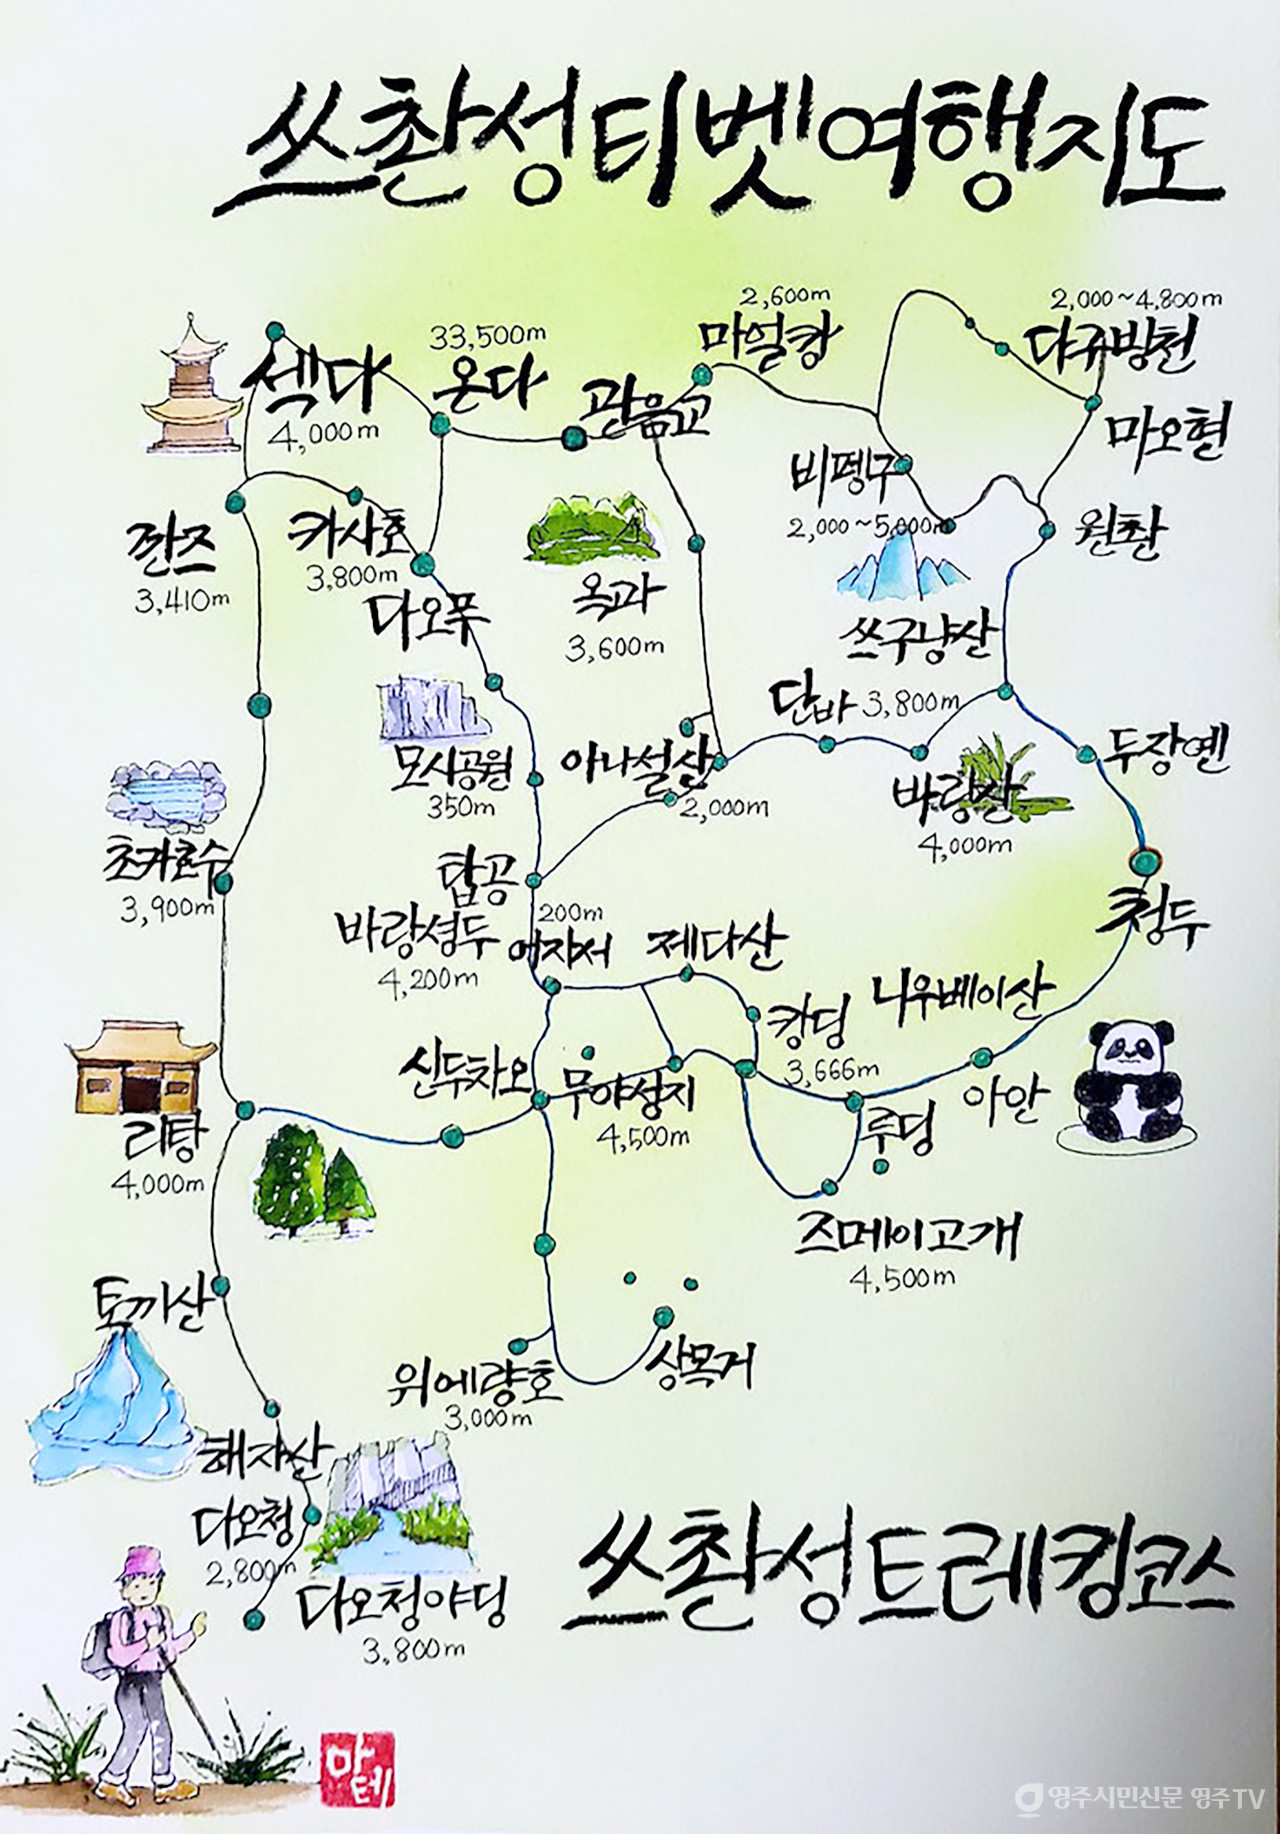 쓰촨성티벳여행지도
2,600m
마얼캉
2,000~4,800m
다규방천
33,500m
온다
섹다
4,000m
관음교
마오현
비펭구
2,000~5,000m
원촨
쨘즈
3,410m
카사호
3,800m
다오푸
옥과
3,600m
쓰구냥산
단바 3,800m
모시공원
350m
아나설산
2,000m
두장옌
바랑산
4,000m
초카호수
3,900m
탑공
청두
바랑셩두
4,200m
200m
어자서
제다산
니우베이산
캉딩
3,666m
신두차오
무야성지
4,500m
아안
루딩
리탕
4,000m
즈메이고개
4,500m
토끼산
위에량호
3,000m
상목거
해자산
다오청
2,800m
다오청야딩
3,800m
쓰촨성트레킹코스
마테
영주시민신문 영주TV